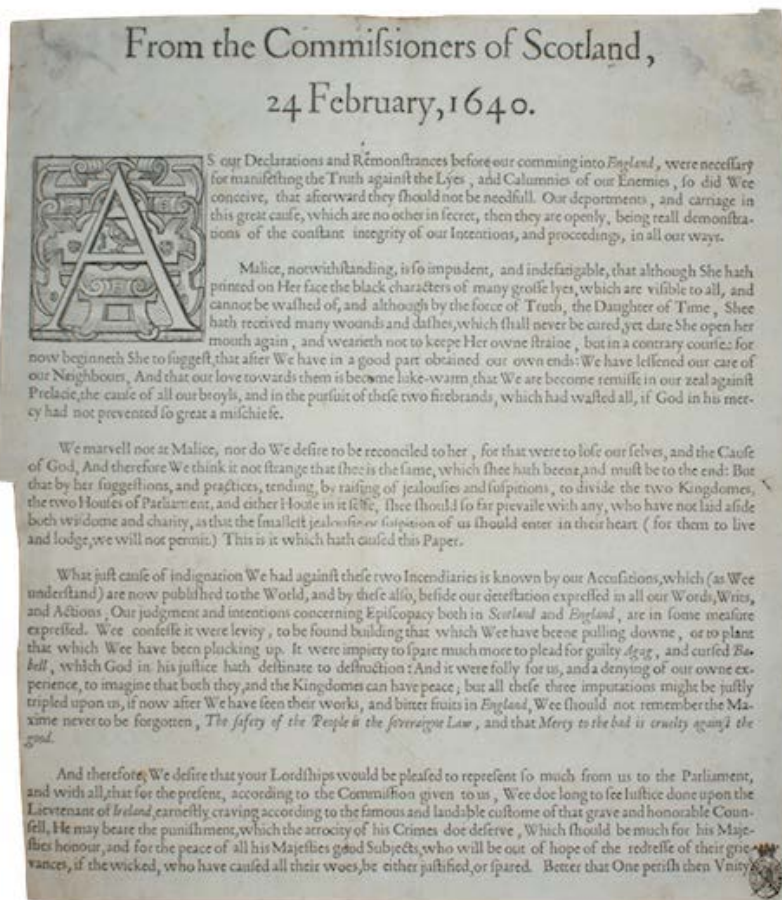 From the Commiſſioners of Scotland,
24 February, 1640.
AS our Declarations and Remonſtrances before our comming into England, were neceſſary
for manifeſting the Truth againſt the Lyes, and Calumnies of our Enemies, ſo did Wee
conceive, that afterward they ſhould not be needfull. Our deportments, and carriage in
this great cauſe, which are no other in ſecret, then they are openly, being reall demonſtra-
tions of the conſtant integrity of our Intentions, and proceedings, in all our wayes.
Malice, notwithſtanding, is ſo impudent, and indefatigable, that although She hath
printed on Her face the black characters of many groſſe lyes, which are viſible to all, and
cannot be waſhed of, and although by the force of Truth, the Daughter of Time, Shee
hath received many wounds and daſhes, which ſhall never be cured, yet dare She open her
mouth again, and weareth not to keepe Her owne ſtraine, but in a contrary courſe: for
now beginneth She to ſuggeſt, that after We have in a good part obtained our own ends: We have leſſened our care of
our Neighbours, And that our love towards them is become luke-warm, that We are become remiſſe in our zeal againſt
Prelacie, the cauſe of all our broyls, and in the purſuit of theſe two firebrands, which had waſted all, if God in his mer-
cy had not prevented ſo great a miſchiefe.
We marvell not at Malice, nor do We deſire to be reconciled to her, for that were to loſe our ſelves, and the Cauſe
of God, And therefore We think it not ſtrange that ſhee is the ſame, which ſhee hath beene, and muſt be to the end: But
that by her ſuggeſtions, and practices, tending, by raiſing of jealouſies and ſuſpitions, to divide the two Kingdomes,
the two Houſes of Parliament, and either Houſe in it ſelfe, ſhee ſhould ſo far prevaile with any, who have not laid aſide
both wiſdome and charity, as that the ſmalleſt jealouſie or ſuſpition of us ſhould enter in their heart ( for them to live
and lodge, we will not permit.) This is it which hath cauſed this Paper.
What juſt cauſe of indignation We had againſt theſe two Incendiaries is known by our Accuſations, which (as Wee
underſtand) are now publiſhed to the World, and by theſe alſo, beſide our deteſtation expreſſed in all our Words, Writs,
and Actions, Our judgment and intentions concerning Epiſcopacy both in Scotland and England, are in ſome meaſure
expreſſed. Wee confeſſe it were levity, to be found building that which We have beene pulling downe, or to plant
that which Wee have been plucking up. It were impiety to ſpare much more to plead for guilty Agag, and curſed Ba-
bell, which God in his juſtice hath deſtinate to deſtruction: And it were folly for us, and a denying of our owne ex-
perience, to imagine that both they, and the Kingdomes can have peace; but all theſe three imputations might be juſtly
tripled upon us, if now after We have ſeen their works, and bitter fruits in England, Wee ſhould not remember the Ma-
xime never to be forgotten, The ſafety of the People is the ſoveraigne Law, and that Mercy to the bad is cruelty againſt the
good.
And therefore, We deſire that your Lordſhips would be pleaſed to repreſent ſo much from us to the Parliament,
and with all, that for the preſent, according to the Commiſſion given to us, Wee doe long to ſee Iuſtice done upon the
Lievtenant of Ireland, earneſtly craving according to the famous and laudable cuſtome of that grave and honorable Coun-
ſell, He may beare the puniſhment, which the atrocity of his Crimes doe deſerve, Which ſhould be much for his Maje-
ſties honour, and for the peace of all his Majeſties good Subjects, who will be out of hope of the redreſſe of their grie-
vances, if the wicked, who have cauſed all their woes, be either juſtified, or ſpared. Better that One periſh then Vnity